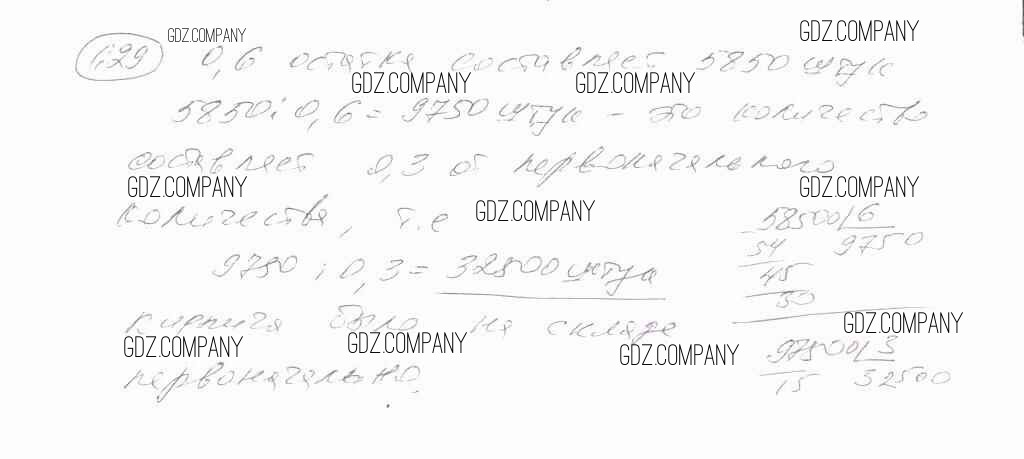 1.29 GDZ.COMPANY GDZ.COMPANY
0,6 остатка составляет 5850 штук
GDZ.COMPANY GDZ.COMPANY
5850 : 0,6 = 9750 штук – это количество
составляет 0,3 от первоначального
GDZ.COMPANY GDZ.COMPANY
количества, т.е GDZ.COMPANY
58500 6
54 9750
45
30
9750 : 0,3 = 32500 штук
кирпича было на складе
GDZ.COMPANY GDZ.COMPANY GDZ.COMPANY GDZ.COMPANY
первоначально.
97500 3
15 32500